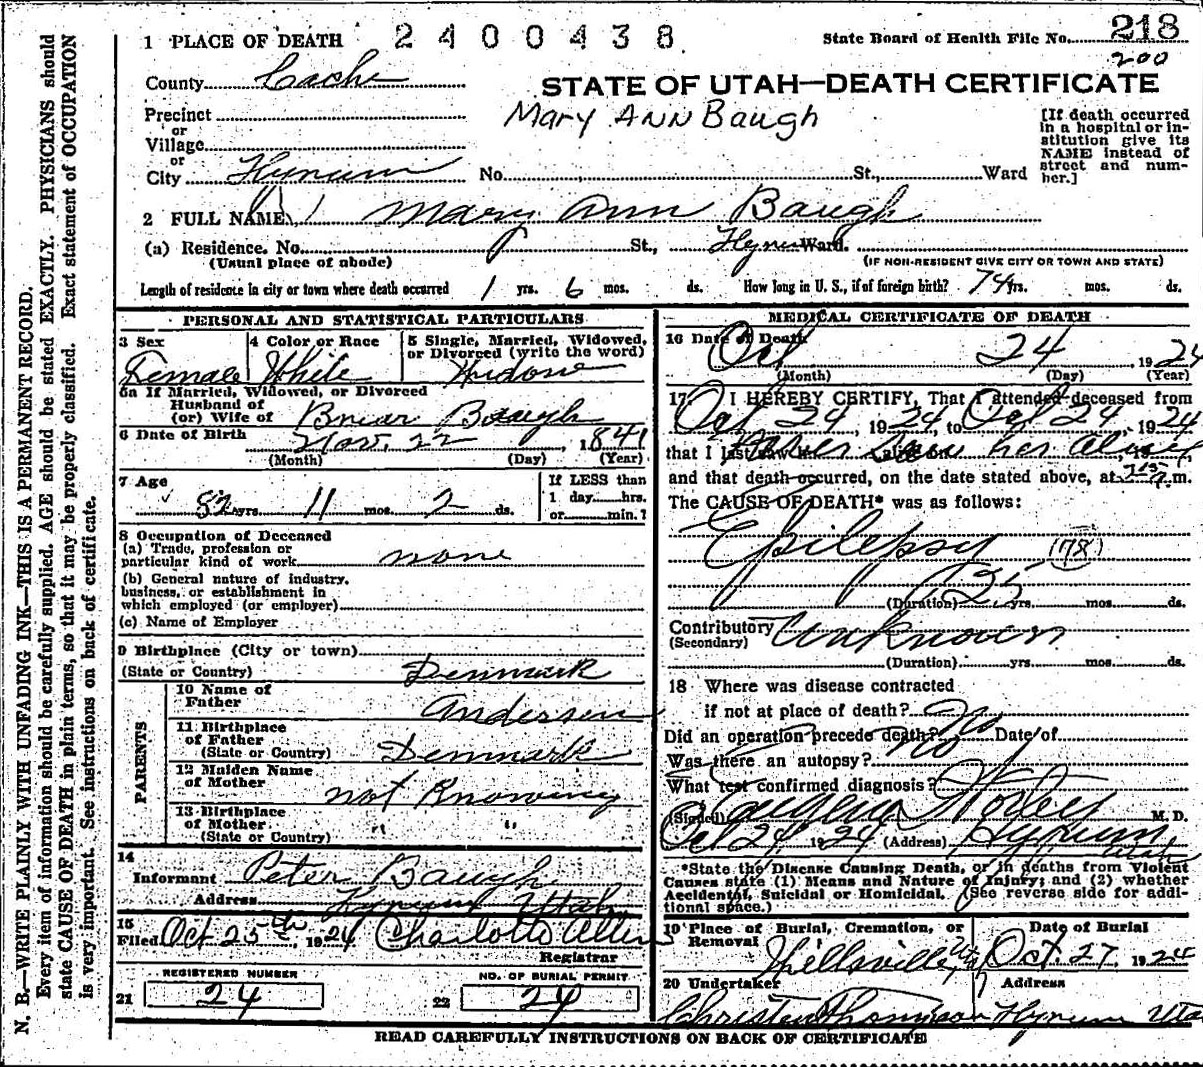 1 PLACE OF DEATH 2400438 State Board of Health File No. 218
200
County Cache STATE OF UTAH—DEATH CERTIFICATE
Precinct Mary Ann Baugh [If death occurred
or in a hospital or in-
Village stitution give its
or NAME instead of
City Hyrum No. St., Ward street and num-
ber.]
2 FULL NAME Mary Ann Baugh
(a) Residence. No. St., Hyrum Ward.
(Usual place of abode) (IF NON-RESIDENT GIVE CITY OR TOWN AND STATE)
Length of residence in city or town where death occurred 1 yrs. 6 mos. ds. How long in U. S., if of foreign birth? 74 yrs. mos. ds.
PERSONAL AND STATISTICAL PARTICULARS
3 Sex 4 Color or Race 5 Single, Married, Widowed,
or Divorced (write the word)
Female White Widow
5a If Married, Widowed, or Divorced
Husband of
(or) Wife of Baugh
6 Date of Birth Nov. 22, 1841
(Month) (Day) (Year)
7 Age If LESS than
82 yrs. 11 mos. 2 ds. 1 day hrs.
or min.?
8 Occupation of Deceased
(a) Trade, profession or
particular kind of work none
(b) General nature of industry,
business, or establishment in
which employed (or employer)
(c) Name of Employer
9 Birthplace (City or town)
(State or Country) Denmark
PARENTS
10 Name of
Father Andersen
11 Birthplace
of Father
(State or Country) Denmark
12 Maiden Name
of Mother not Knowing
13 Birthplace
of Mother " "
(State or Country)
14
Informant Peter Baugh
Address Hyrum Utah
15
Filed Oct 25th, 1924 Charlotte Allen
Registrar
REGISTERED NUMBER NO. OF BURIAL PERMIT
21 24 22 24
MEDICAL CERTIFICATE OF DEATH
16 Date of Death Oct 24, 1924
(Month) (Day) (Year)
17 I HEREBY CERTIFY, That I attended deceased from
Oct 24, 1924 to Oct 24, 1924
that I last saw h alive on her alive, 19
and that death occurred, on the date stated above, at m.
The CAUSE OF DEATH* was as follows:
Epilepsy (78)
(Duration) 25 yrs. mos. ds.
Contributory Unknown
(Secondary)
(Duration) yrs. mos. ds.
18 Where was disease contracted
if not at place of death? No
Did an operation precede death? no Date of
Was there an autopsy?
What test confirmed diagnosis?
(Signed) M. D.
Oct 24 1924 (Address) Hyrum, Utah
*State the Disease Causing Death, or in deaths from Violent
Causes state (1) Means and Nature of Injury; and (2) whether
Accidental, Suicidal or Homicidal. (See reverse side for addi-
tional space.)
19 Place of Burial, Cremation, or Date of Burial
Removal
Wellsville Utah Oct. 27, 1924
20 Undertaker Address
Christen Thompson Hyrum Utah
READ CAREFULLY INSTRUCTIONS ON BACK OF CERTIFICATE
N. B.—WRITE PLAINLY WITH UNFADING INK—THIS IS A PERMANENT RECORD.
Every item of information should be carefully supplied. AGE should be stated EXACTLY. PHYSICIANS should
state CAUSE OF DEATH in plain terms, so that it may be properly classified. Exact statement of OCCUPATION
is very important. See instructions on back of certificate.